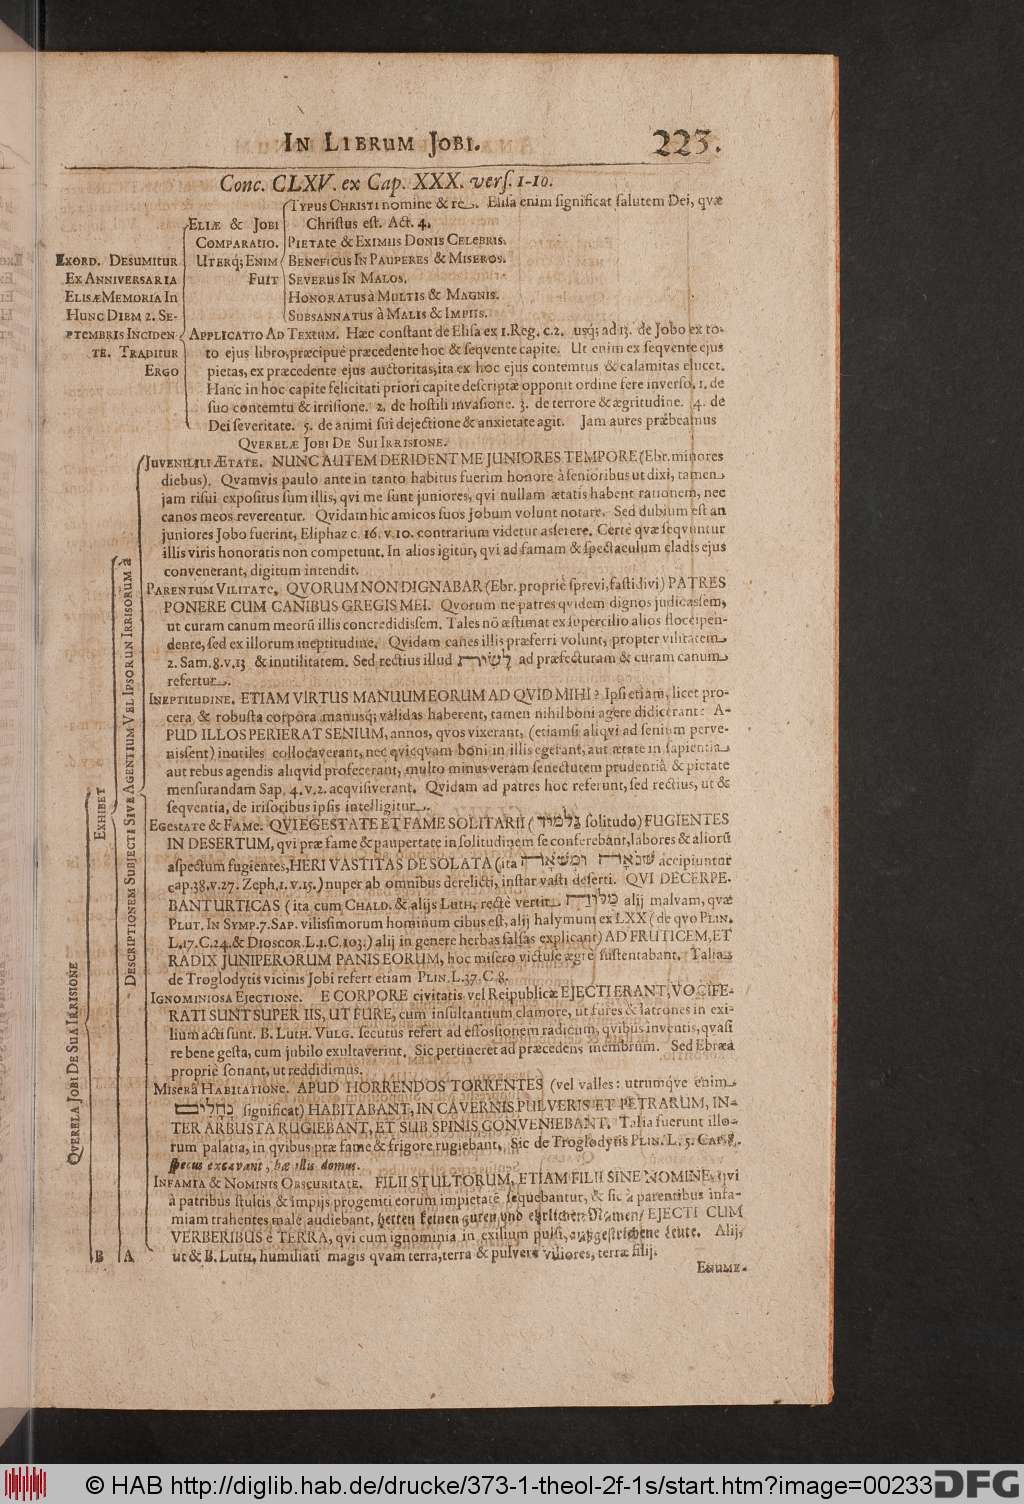 IN LIBRUM JOBI. 223.
Conc. CLXV. ex Cap. XXX. vers. 1-10.
EXORD. DESUMITUR
EX ANNIVERSARIA
ELISÆ MEMORIA IN
HUNC DIEM 2. SE-
PTEMBRIS INCIDEN-
TE. TRADITUR
ERGO
ELIÆ & JOBI
COMPARATIO.
UTERQ; ENIM
FUIT
TYPUS CHRISTI nomine & re. Elisa enim significat salutem Dei, qvæ
Christus est. Act. 4.
PIETATE & EXIMIIS DONIS CELEBRIS.
BENEFICUS IN PAUPERES & MISEROS.
SEVERUS IN MALOS.
HONORATUS à MULTIS & MAGNIS.
SUBSANNATUS à MALIS & IMPIIS.
APPLICATIO AD TEXTUM. Hæc constant de Elisa ex 1. Reg. c. 2. usq; ad 13. de Jobo ex to-
to ejus libro, præcipuè præcedente hoc & seqvente capite. Ut enim ex seqvente ejus
pietas, ex præcedente ejus auctoritas, ita ex hoc ejus contemtus & calamitas elucet.
Hanc in hoc capite felicitati priori capite descriptæ opponit ordine fere inverso. 1. de
suo contemtu & irrisione. 2. de hostili invasione. 3. de terrore & ægritudine. 4. de
Dei severitate. 5. de animi sui dejectione & anxietate agit. Jam aures præbeamus
QVERELÆ JOBI DE SUI IRRISIONE.
JUVENILI ÆTATE. NUNC AUTEM DERIDENT ME JUNIORES TEMPORE (Ebr. minores
diebus). Qvamvis paulo ante in tanto habitus fuerim honore à senioribus ut dixi, tamen
jam risui expositus sum illis, qvi me sunt juniores, qvi nullam ætatis habent rationem, nec
canos meos reverentur. Qvidam hic amicos suos Jobum volunt notare. Sed dubium est an
juniores Jobo fuerint, Eliphaz c. 16. v. 10. contrarium videtur asserere. Certè qvæ seqvuntur
illis viris honoratis non competunt. In alios igitur, qvi ad famam & spectaculum cladis ejus
convenerant, digitum intendit.
PARENTUM VILITATE. QVORUM NON DIGNABAR (Ebr. propriè sprevi, fastidivi) PATRES
PONERE CUM CANIBUS GREGIS MEI. Qvorum ne patres qvidem dignos judicassem,
ut curam canum meorū illis concredidissem. Tales nō æstimat ex supercilio alios floccipen-
dente, sed ex illorum ineptitudine. Qvidam canes illis præferri volunt, propter vilitatem
2. Sam. 8. v. 13 & inutilitatem. Sed rectius illud לשׁות ad præfecturam & curam canum
refertur.
INEPTITUDINE. ETIAM VIRTUS MANUUM EORUM AD QVID MIHI? Ipsi etiam, licet pro-
cera & robusta corpora manusq; validas haberent, tamen nihil boni agere didicerant: A-
PUD ILLOS PERIERAT SENIUM, annos, qvos vixerant, (etiamsi aliqvi ad senium perve-
nissent) inutiles collocaverant, nec qvicqvam boni in illis egerant, aut ætate in sapientia
aut rebus agendis aliqvid profecerant, multo minus veram senectutem prudentiâ & pietate
mensurandam Sap. 4. v. 2. acqvisiverant. Qvidam ad patres hoc referunt, sed rectius, ut &
seqventia, de irrisoribus ipsis intelligitur.
EGESTATE & FAME. QVI EGESTATE ET FAME SOLITARII (גלמוד solitudo) FUGIENTES
IN DESERTUM, qvi præ fame & paupertate in solitudinem se conferebant, labores & aliorū
aspectum fugientes, HERI VASTITAS DESOLATA (ita שׁואה ומשׁואה accipiuntur
cap. 38. v. 27. Zeph. 1. v. 15.) nuper ab omnibus derelicti, instar vasti deserti. QVI DECERPE-
BANT URTICAS (ita cum CHALD. & alijs LUTH, rectè vertit מלוח alij malvam, qvæ
PLUT. IN SYMP. 7. SAP. vilissimorum hominum cibus est, alij halymum ex LXX (de qvo PLIN.
L. 17. C. 24. & DIOSCOR. L. 1. C. 103.) alij in genere herbas salsas explicant) AD FRUTICEM, ET
RADIX JUNIPERORUM PANIS EORUM, hoc misero victu se ægrè sustentabant. Talia
de Troglodytis vicinis Jobi refert etiam PLIN. L. 37. C. 8.
IGNOMINIOSA EJECTIONE. E CORPORE civitatis vel Reipublicæ EJECTI ERANT, VOCIFE-
RATI SUNT SUPER IIS, UT FURE, cum insultantium clamore, ut fures & latrones in exi-
lium acti sunt. B. LUTH. VULG. secutus refert ad effossionem radicum, qvibus inventis, qvasi
re bene gesta, cum jubilo exultaverint. Sic pertineret ad præcedens membrum. Sed Ebræa
propriè sonant, ut reddidimus.
MISERA HABITATIONE. APUD HORRENDOS TORRENTES (vel valles: utrumqve enim
נחלים significat) HABITABANT, IN CAVERNIS PULVERIS ET PETRARUM, IN-
TER ARBUSTA RUGIEBANT, ET SUB SPINIS CONVENIEBANT. Talia fuerunt illo-
rum palatia, in qvibus præ fame & frigore rugiebant. Sic de Troglodytis PLIN. L. 5. CAP. 8.
specus excavant, hæ illis domus.
INFAMIA & NOMINIS OBSCURITATE. FILII STULTORUM, ETIAM FILII SINE NOMINE, qvi
à patribus stultis & impijs progeniti eorum impietatē sequebantur, & sic à parentibus infa-
miam trahentes malè audiebant, hetten keinen guten und ehrlichen Namen/ EJECTI CUM
VERBERIBUS è TERRA, qvi cum ignominia in exilium pulsi, außgestrichene Leute. Alij,
ut & B. LUTH. humiliati magis qvam terra, terra & pulvere viliores, terræ filij.
ENUME-
QVERELA JOBI DE SUA IRRISIONE
EXHIBET
DESCRIPTIONEM SUBJECTI SIVE AGENTIUM VEL IPSORUM IRRISORUM à
B A
© HAB http://diglib.hab.de/drucke/373-1-theol-2f-1s/start.htm?image=00233 DFG